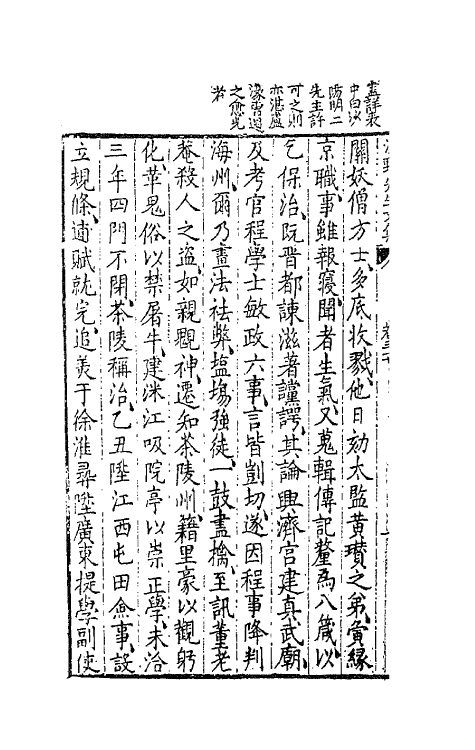 盡詳表
中白沙
陽明二
先生許
可之則
亦湛盧
之愈光
者
關妖僧方士多底收戮他日劾太監黃瓚之弟寅緣
京職事雖報寢聞者生氣又蒐輯傳記釐為八箴以
乞保治阮晉都諫滋著讜諤其論興濟宫建真武廟
及考官程學士敏政六事言皆剴切遂因程事降判
海州爾乃畫法祛弊塩塲強徒一鼓盡擒至訊董老
菴殺人之盜如親覩神遷知茶陵州籍里豪以觀躬
化革鬼俗以禁屠牛建洣江吸院亭以崇正學未洽
三年四門不閉茶陵稱治乙丑陞江西屯田僉事設
立規條逋賦就完追羙于徐淮尋陞廣東提學副使